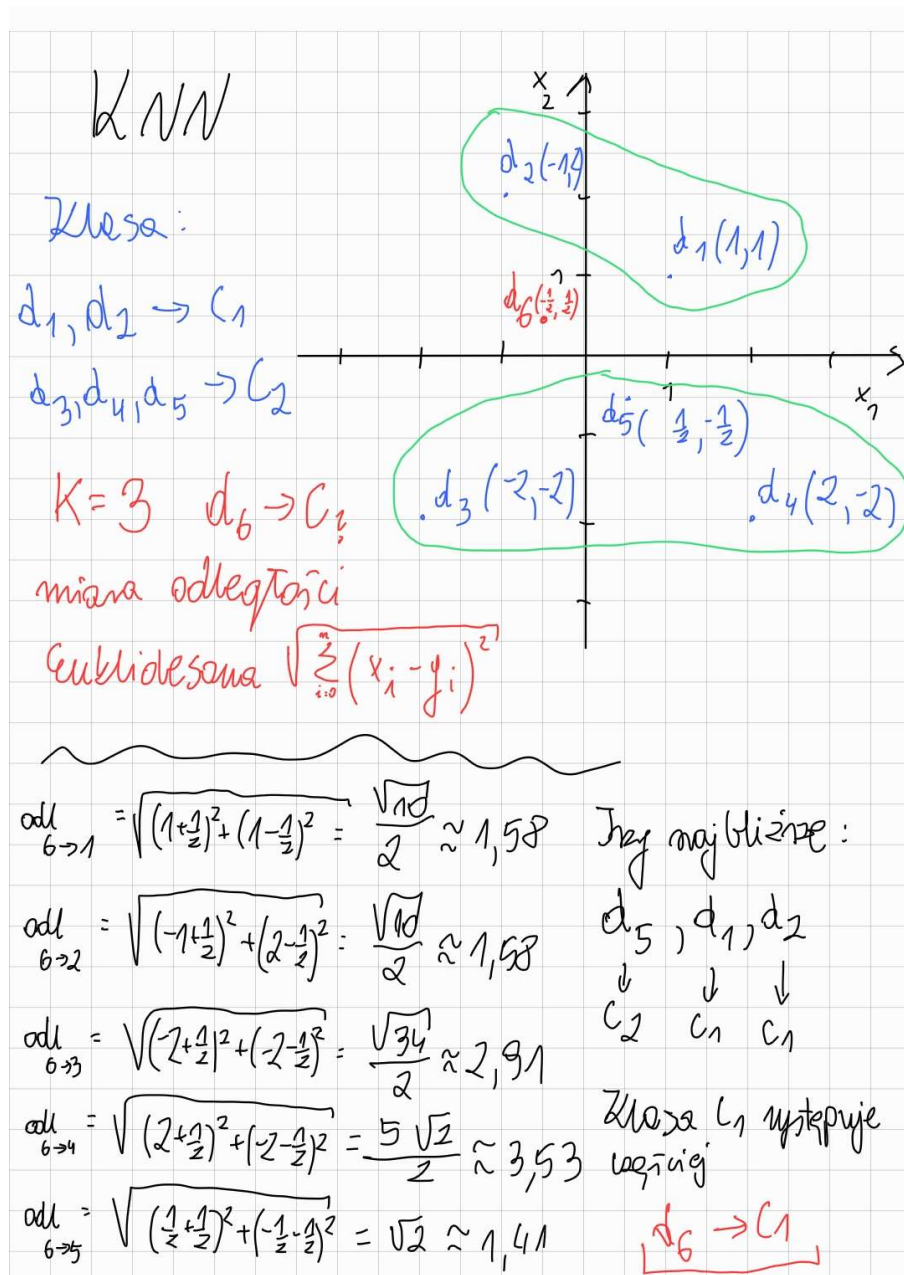 KNN
Klasa:
d₁, d₂ → C₁
d₃, d₄, d₅ → C₂
K = 3 d₆ → C?
miara odległości
Euklidesowa √(∑ᵢ₌₀ⁿ (xᵢ - yᵢ)²)
x₂
d₂(-1,2)
d₁(1,1)
1
d₆(-½, ½)
1
x₁
d₅(½, -½)
d₃(-2,-2)
d₄(2,-2)
odl 6→1 = √((1+½)² + (1-½)²) = √10/2 ≈ 1,58
odl 6→2 = √((-1+½)² + (2-½)²) = √10/2 ≈ 1,58
odl 6→3 = √((-2+½)² + (-2-½)²) = √34/2 ≈ 2,91
odl 6→4 = √((2+½)² + (-2-½)²) = 5√2/2 ≈ 3,53
odl 6→5 = √((½+½)² + (-½-½)²) = √2 ≈ 1,41
Trzy najbliższe:
d₅, d₁, d₂
↓ ↓ ↓
C₂ C₁ C₁
Klasa C₁ występuje
częściej
d₆ → C₁